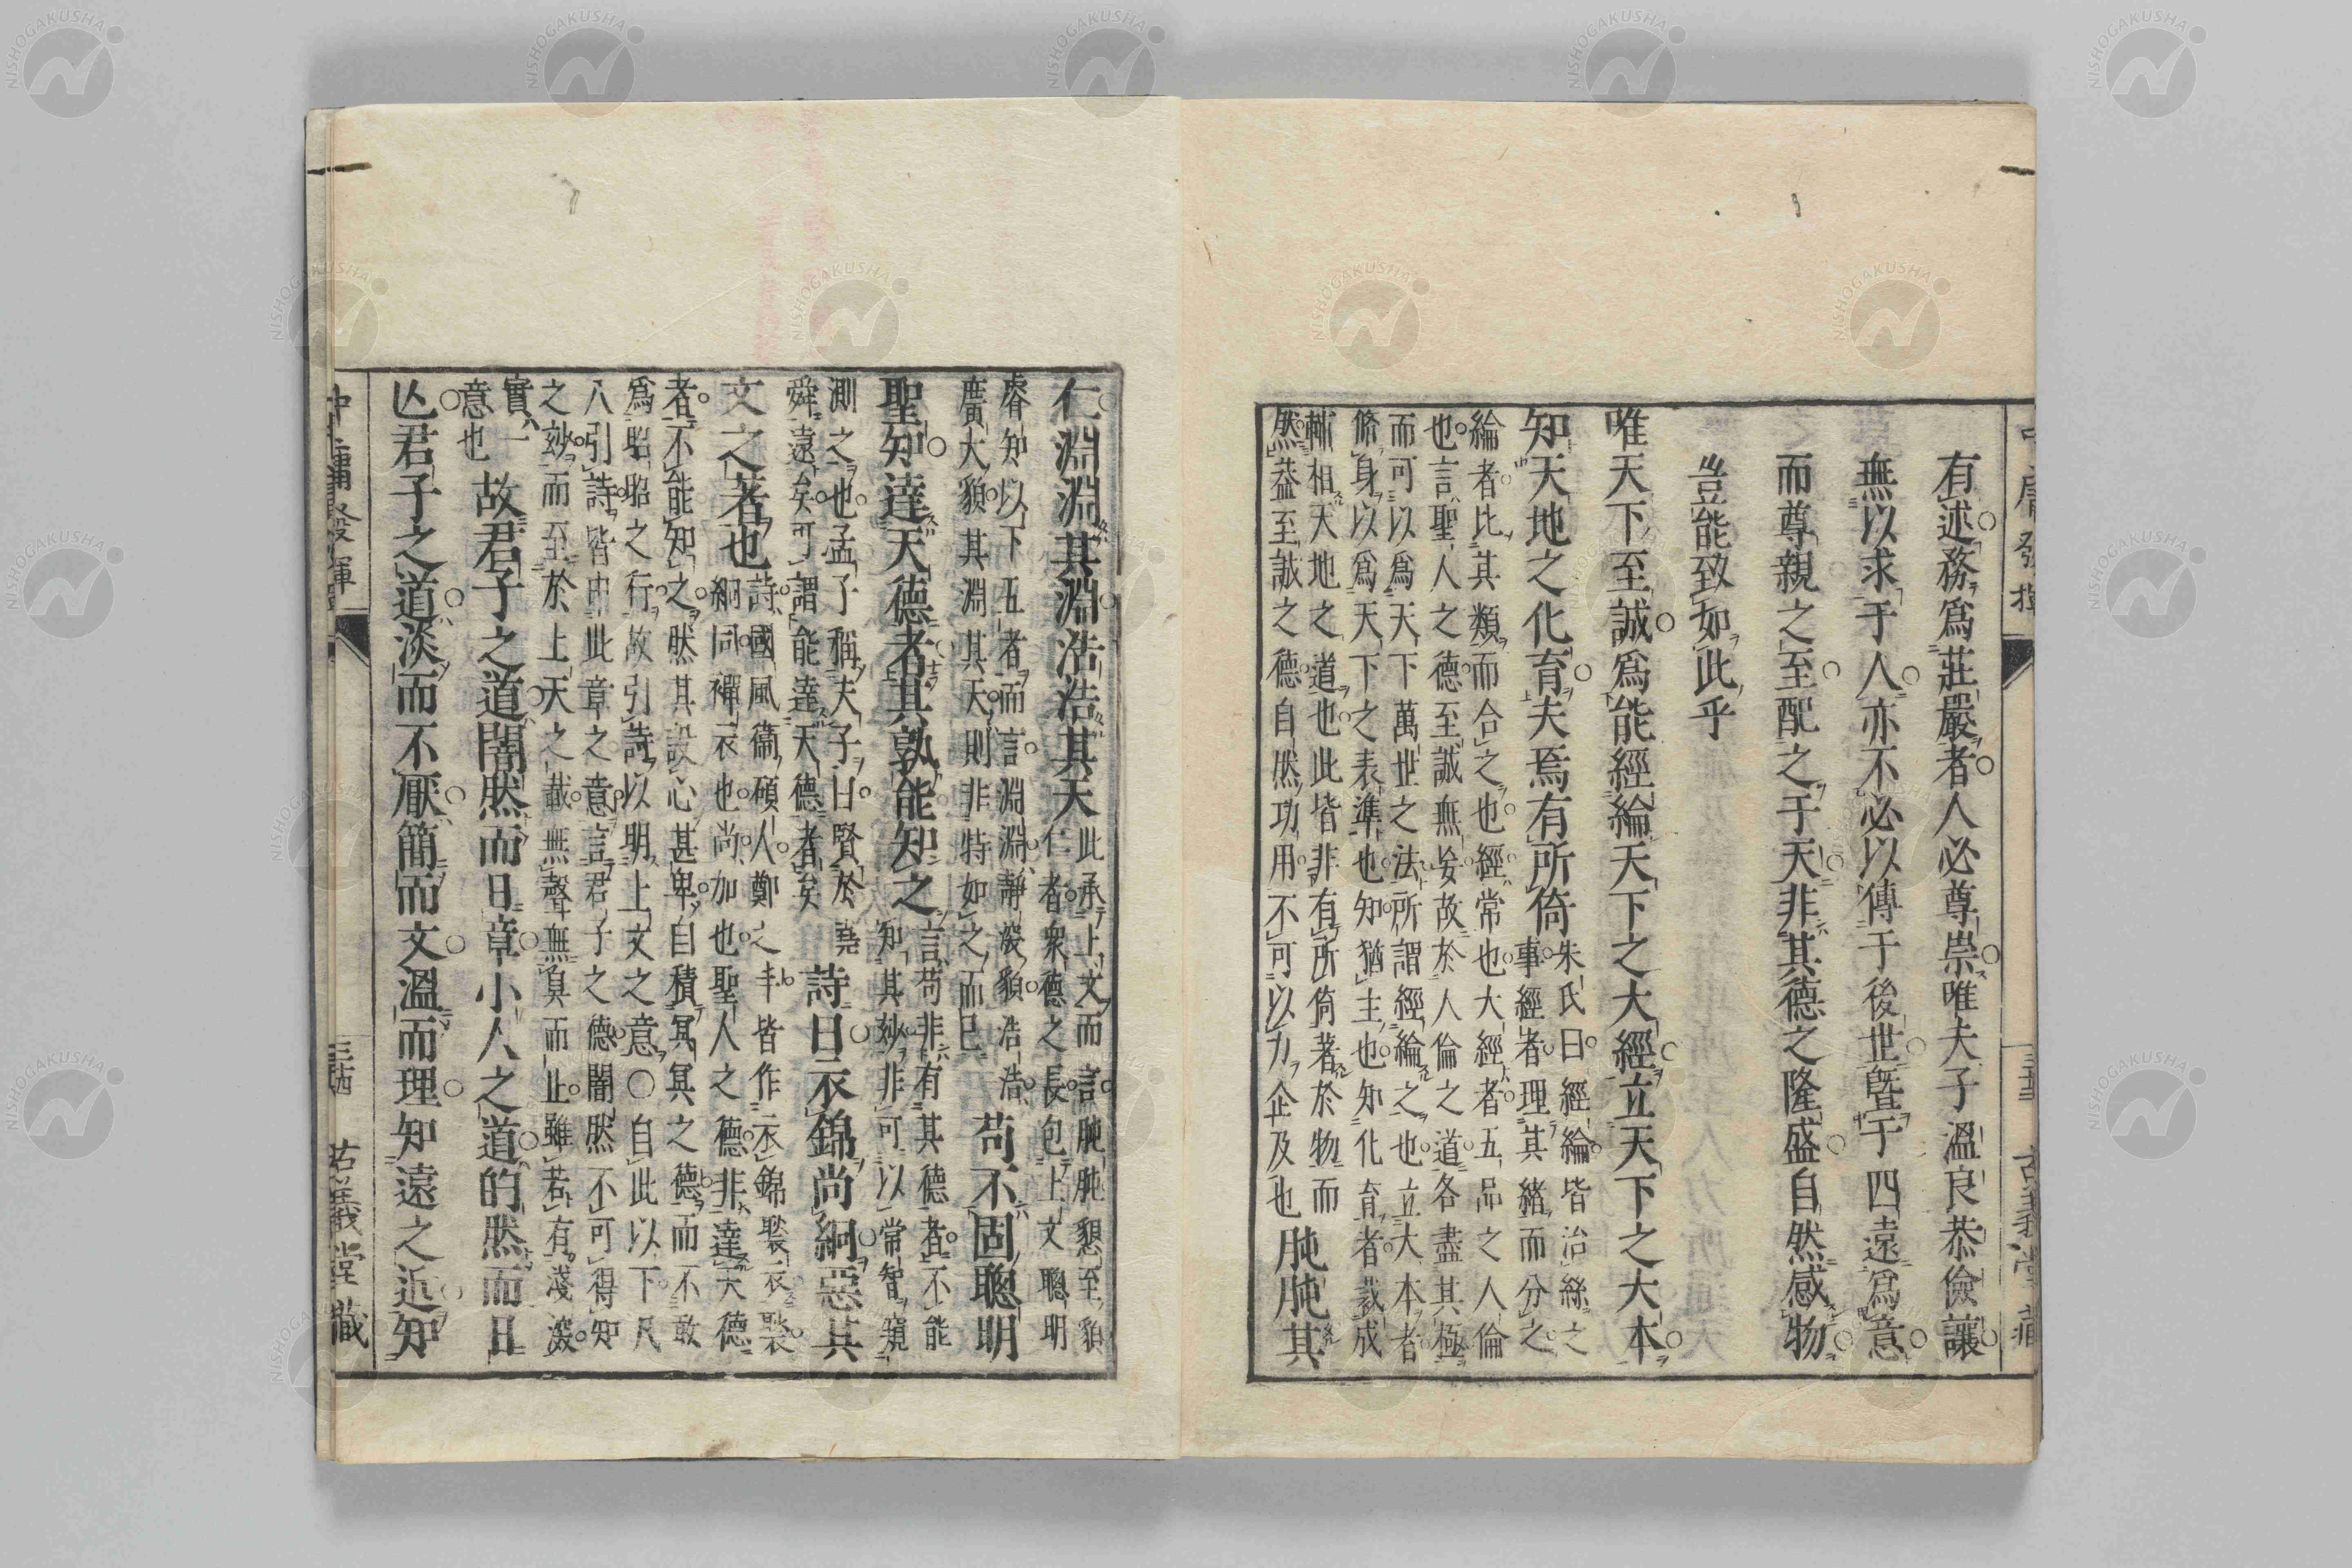 中庸發揮 三十三 古義堂藏
有述務爲莊嚴者人必尊崇唯夫子溫良恭儉讓
無以求于人亦不必以傳于後世曁于四遠爲意
而尊親之至配之于天非其德之隆盛自然感物
豈能致如此乎
唯天下至誠爲能經綸天下之大經立天下之大本
知天地之化育夫焉有所倚
朱氏曰經綸皆治絲之
事經者理其緒而分之
綸者比其類而合之也經常也大經者五品之人倫
也言聖人之德至誠無妄故於人倫之道各盡其極
而可以爲天下萬世之法所謂經綸之也立大本者
脩身以爲天下之表準也知猶主也知化育者裁成
輔相天地之道也此皆非有所倚著於物而
然蓋至誠之德自然功用不可以力企及也
肫肫其
仁淵淵其淵浩浩其天
此承上文而言肫肫懇至貌
仁者衆德之長包上文聰明
睿知以下五者而言淵淵靜深貌浩浩
廣大貌其淵其天則非特如之而已
苟不固聰明
聖知達天德者其孰能知之
言苟非有其德者不能
知其妙非可以常智窺
測之也孟子稱夫子曰賢於堯
舜遠矣可謂能達天德者矣
詩曰衣錦尚絅惡其
文之著也
詩國風衞碩人鄭之丰皆作衣錦褧衣褧
絅同襌衣也尚加也聖人之德非達天德
者不能知之然其設心甚卑自積冥冥之德而不敢
爲昭昭之行故引詩以明上文之意〇自此以下凡
八引詩皆申此章之意言君子之德闇然不可得知
之妙而至於上天之載無聲無臭而止雖若有淺深
實一
意也
故君子之道闇然而日章小人之道的然而日
亾君子之道淡而不厭簡而文溫而理知遠之近知
中庸發揮 三十四 古義堂藏
NISHOGAKUSHA